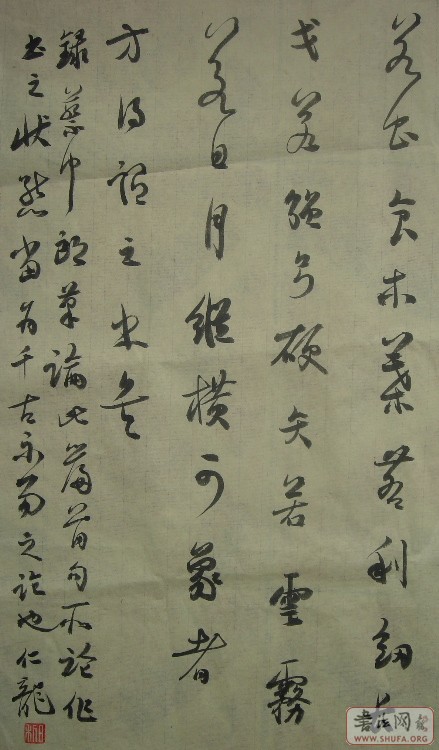 若虫食木葉若利劍長
戈若強弓硬矢若雲霧
若日月縱橫可象者
方得謂之書矣
錄蔡中郎筆論此篇首句所論作
書之狀態當為千古不易之論也仁龍
書法网
WWW.SHUFA.ORG